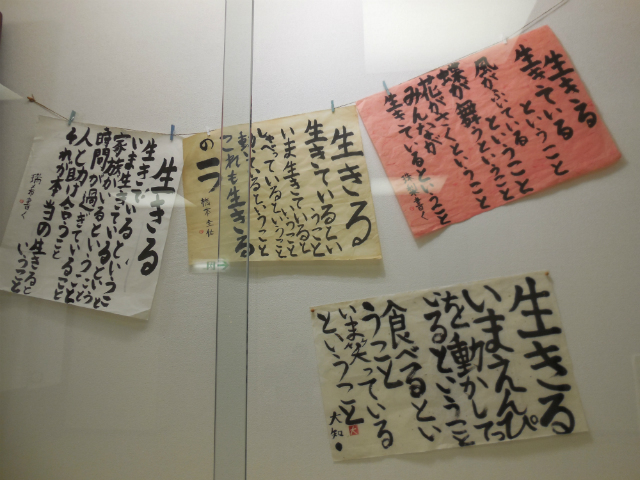 生きる
生きているということ
いま生きているということ
家族がいるということ
時間が過ぎているということ
人と助け合うこと
それが本当の生きると
いうこと
生きる
生きているということ
いま生きていると
しゃべっているということ
動いているということ
これも生きる
の
生きる
生きているということ
風がふいているということ
蝶が舞うということ
花がさくということ
みんなが
生きているということ
生きる
いまえんぴつ
を動かして
いるということ
食べるとい
うこと
いま笑っている
ということ
大知